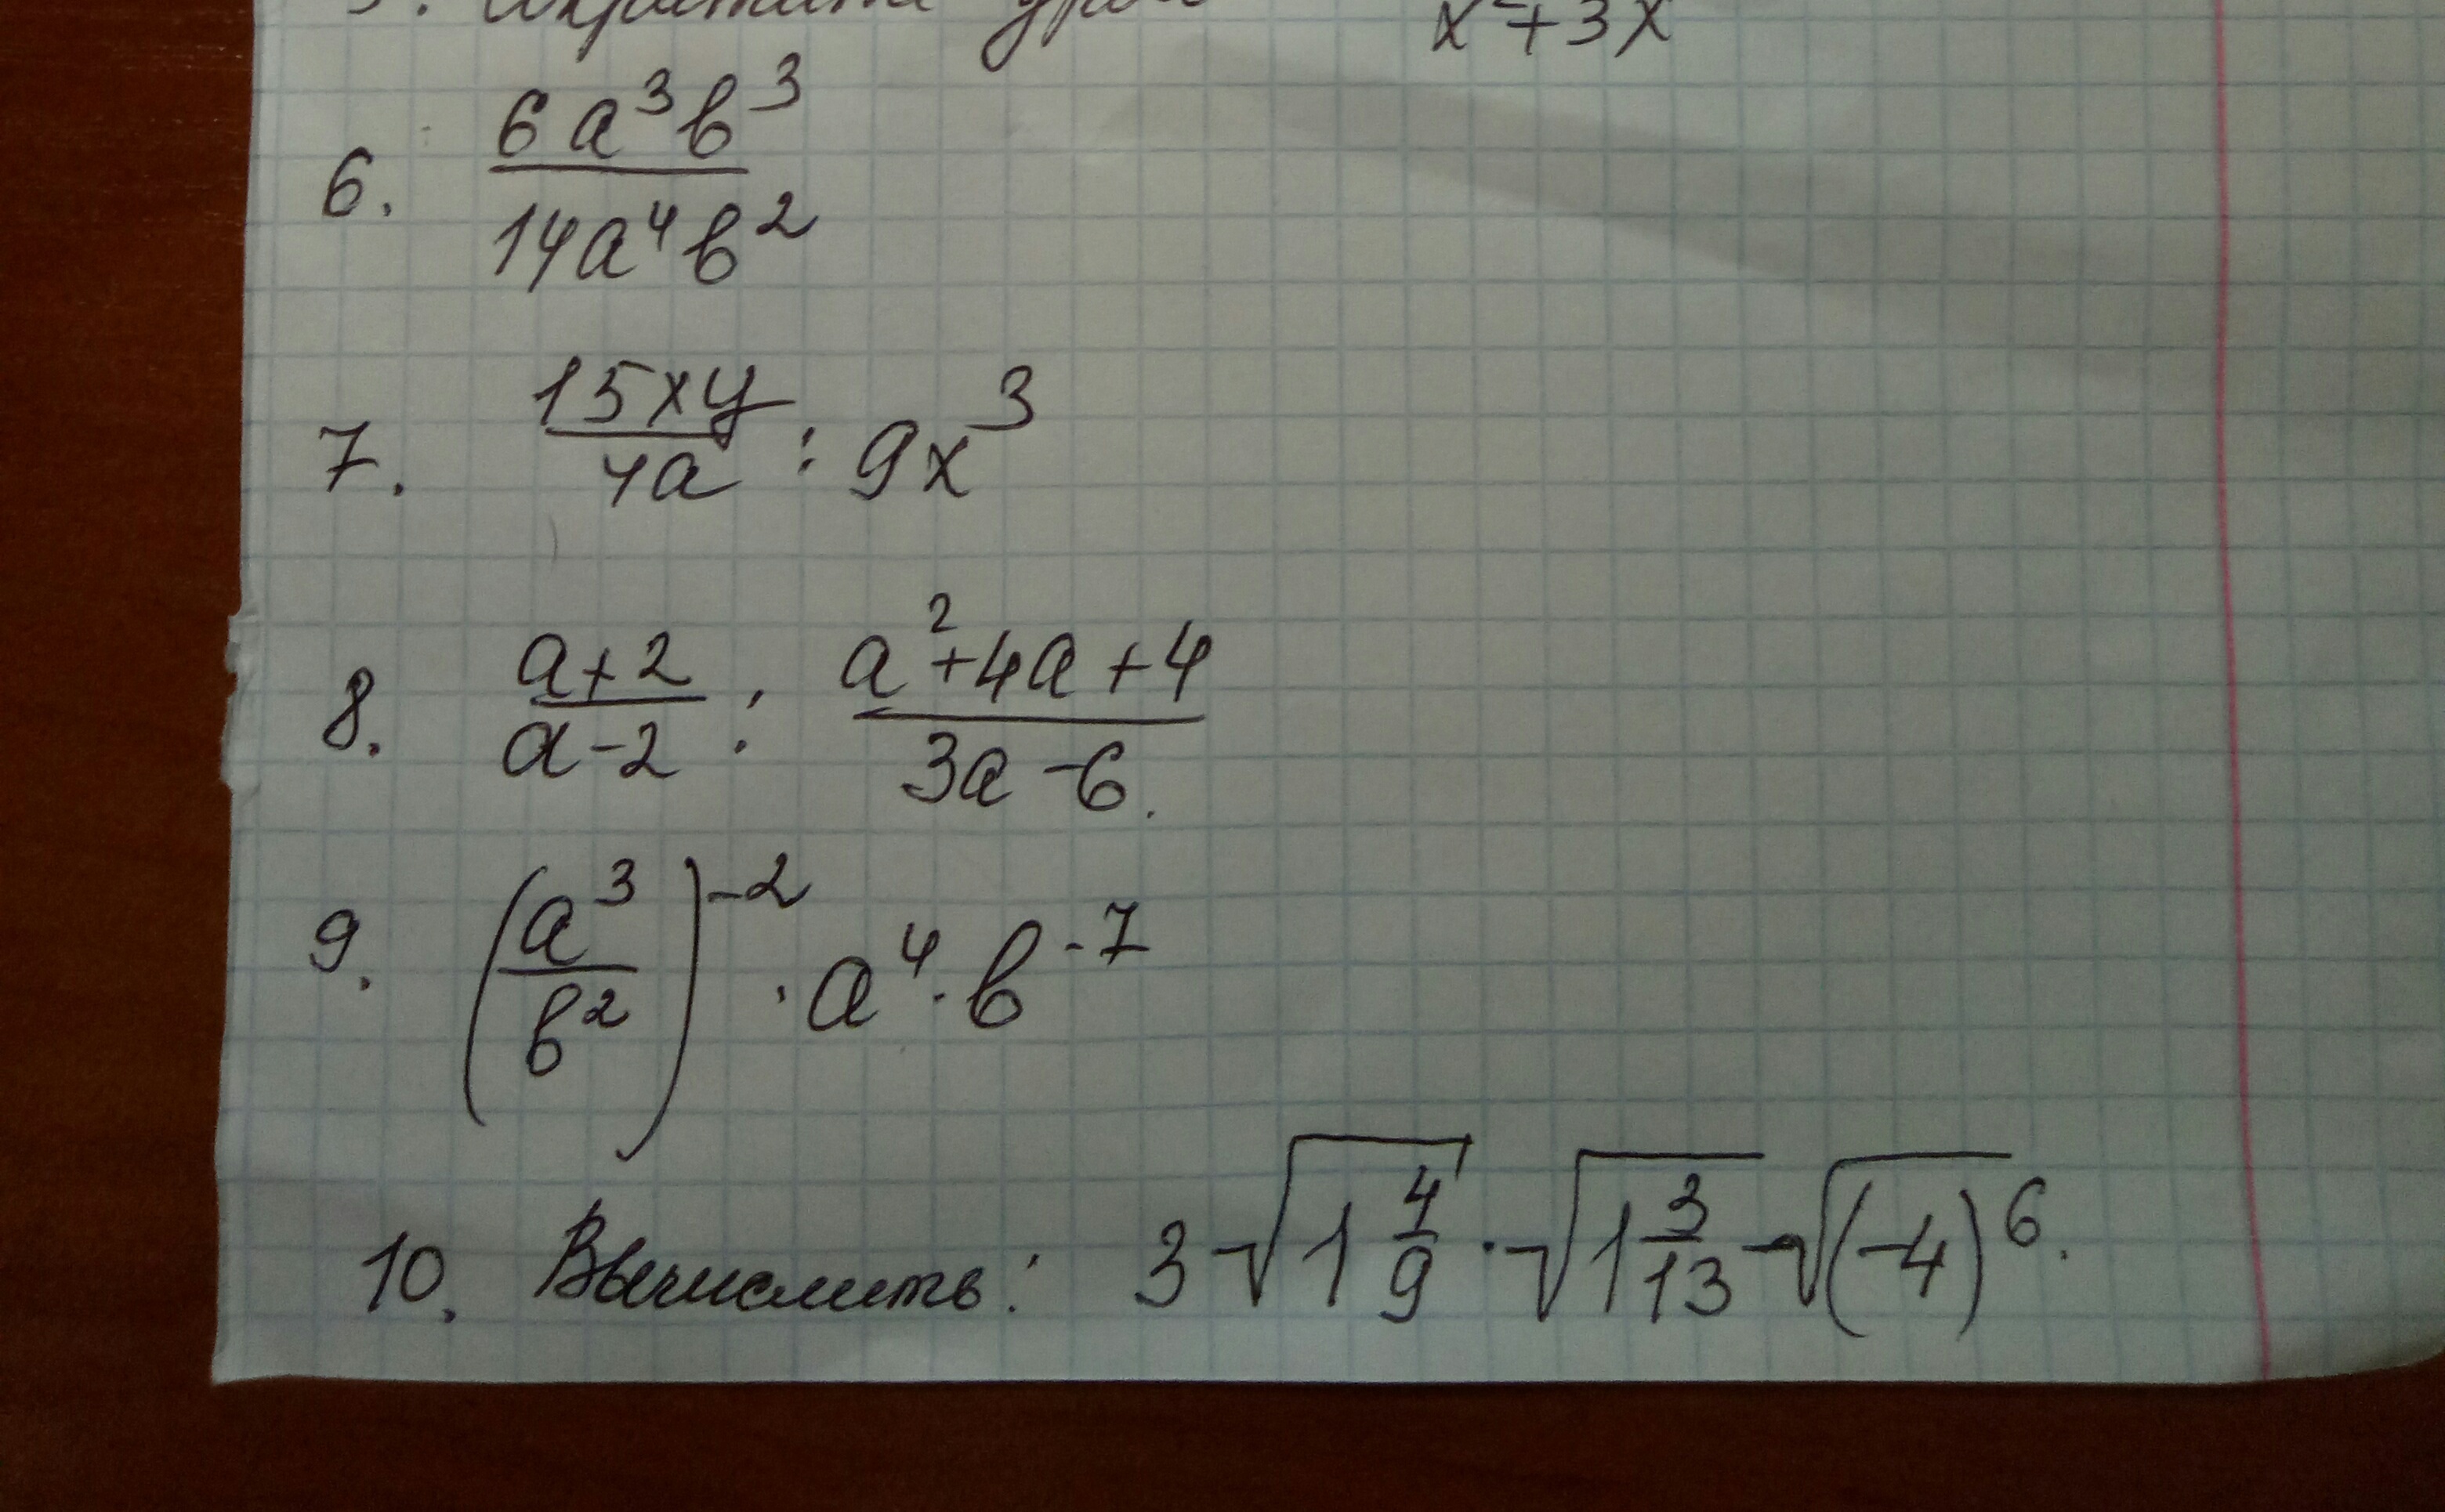 5. Сократить
x² + 3x
6. 6a³b³ / 14a⁴b²
7. 15xy / 4a : 9x³
8. a+2 / a-2 : a²+4a+4 / 3a-6.
9. (a³ / b²)⁻² · a⁴ · b⁻⁷
10. Вычислить: 3√1 4/9 · √1 3/13 - √(-4)⁶.